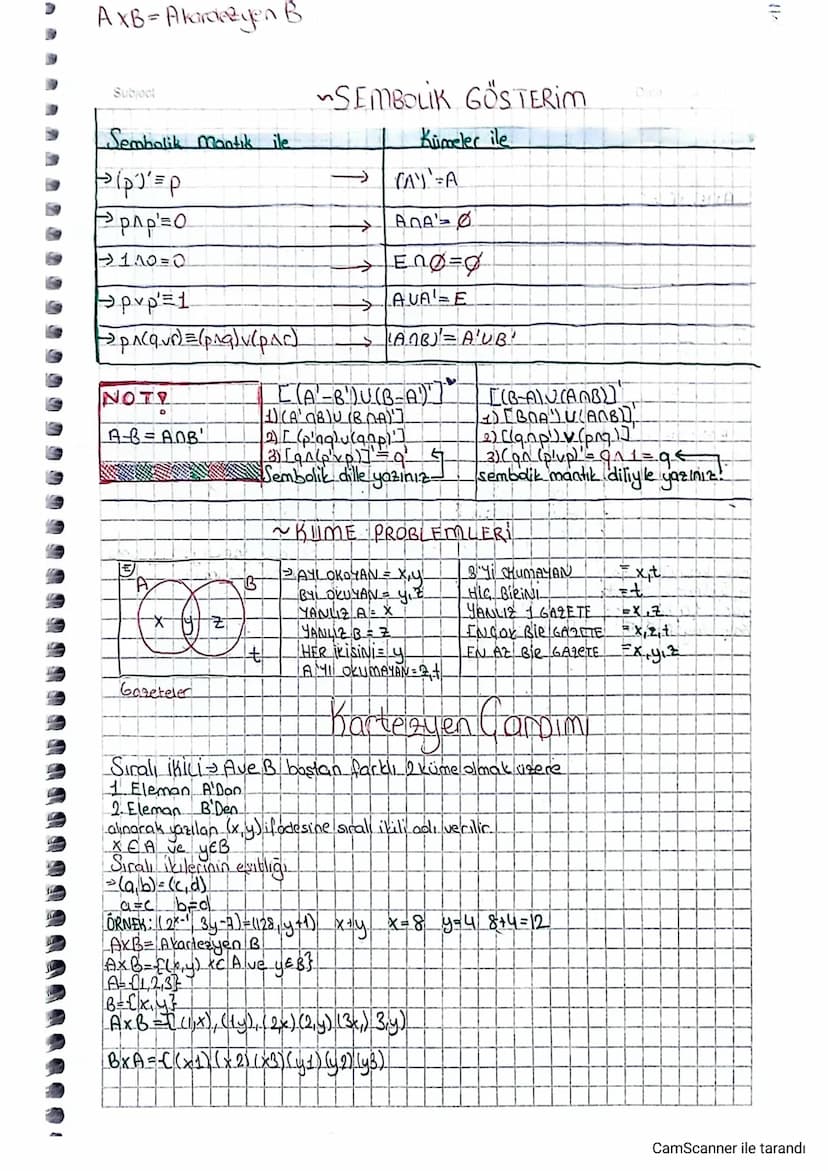 AxB = A kardezyen B
Subject
~SEMBOLİK GÖSTERİM
Sembolik mantık ile
Kümeler ile
→(p')'≡p → (A')'=A
→p∧p'≡0 → A∩A'=∅
→1∧0≡0 → E∩∅=∅
→p∨p'≡1 → A∪A'=E
→p∧(q∨r)≡(p∧q)∨(p∧r) → (A∩B)'=A'∪B'
NOT!
A-B=A∩B'
[(A'-B')∪(B-A')']'
1)(A'∩B)∪(B∩A)']
2)[(p'∧q)∨(q∧p)']
3)[q∧(p'∨p)]'≡q'
Sembolik dille yazınız
[(B-A)∪(A∩B)]'
1)[B∩A')∪(A∩B)]'
2)[(q∧p')∨(p∧q)]'
3)(q∧(p'∨p)'≡q∧1=q
sembolik mantık diliyle yazınız!
~KÜME PROBLEMLERİ
E
A
B
x y z
t
Gazeteler
→ A'YI OKUYAN = x,y
B'Yİ OKUYAN = y,z
YANLIZ A = x
YANLIZ B = z
HER İKİSİNİ = y
A'YI OKUMAYAN = z,t
B'Yİ OKUMAYAN = x,t
HİÇ BİRİNİ = t
YANLIZ 1 GAZETE = x,z
ENÇOK BİR GAZETE = x,z,t
EN AZ BİR GAZETE = x,y,z
Kartezyen Çarpımı
Sıralı ikili → A ve B boştan farklı 2 küme olmak üzere
1. Eleman A'Dan
2. Eleman B'Den
alınarak yazılan (x,y) ifadesine sıralı ikili adı verilir.
x∈A ve y∈B
Sıralı ikilerinin eşitliği
→(a,b)=(c,d)
a=c b=d
ÖRNEK: (2ˣ⁻¹, 3y-7)=(128, y+1) x+y x=8 y=4 8+4=12
AxB= A kartezyen B
AxB={(x,y) x∈A ve y∈B}
A={1,2,3}
B={x,y}
AxB={(1,x),(1y),(2x)(2,y)(3x,)3,y)
BxA={(x1)(x2)(x3)(y1)(y2)(y3)
CamScanner ile tarandı